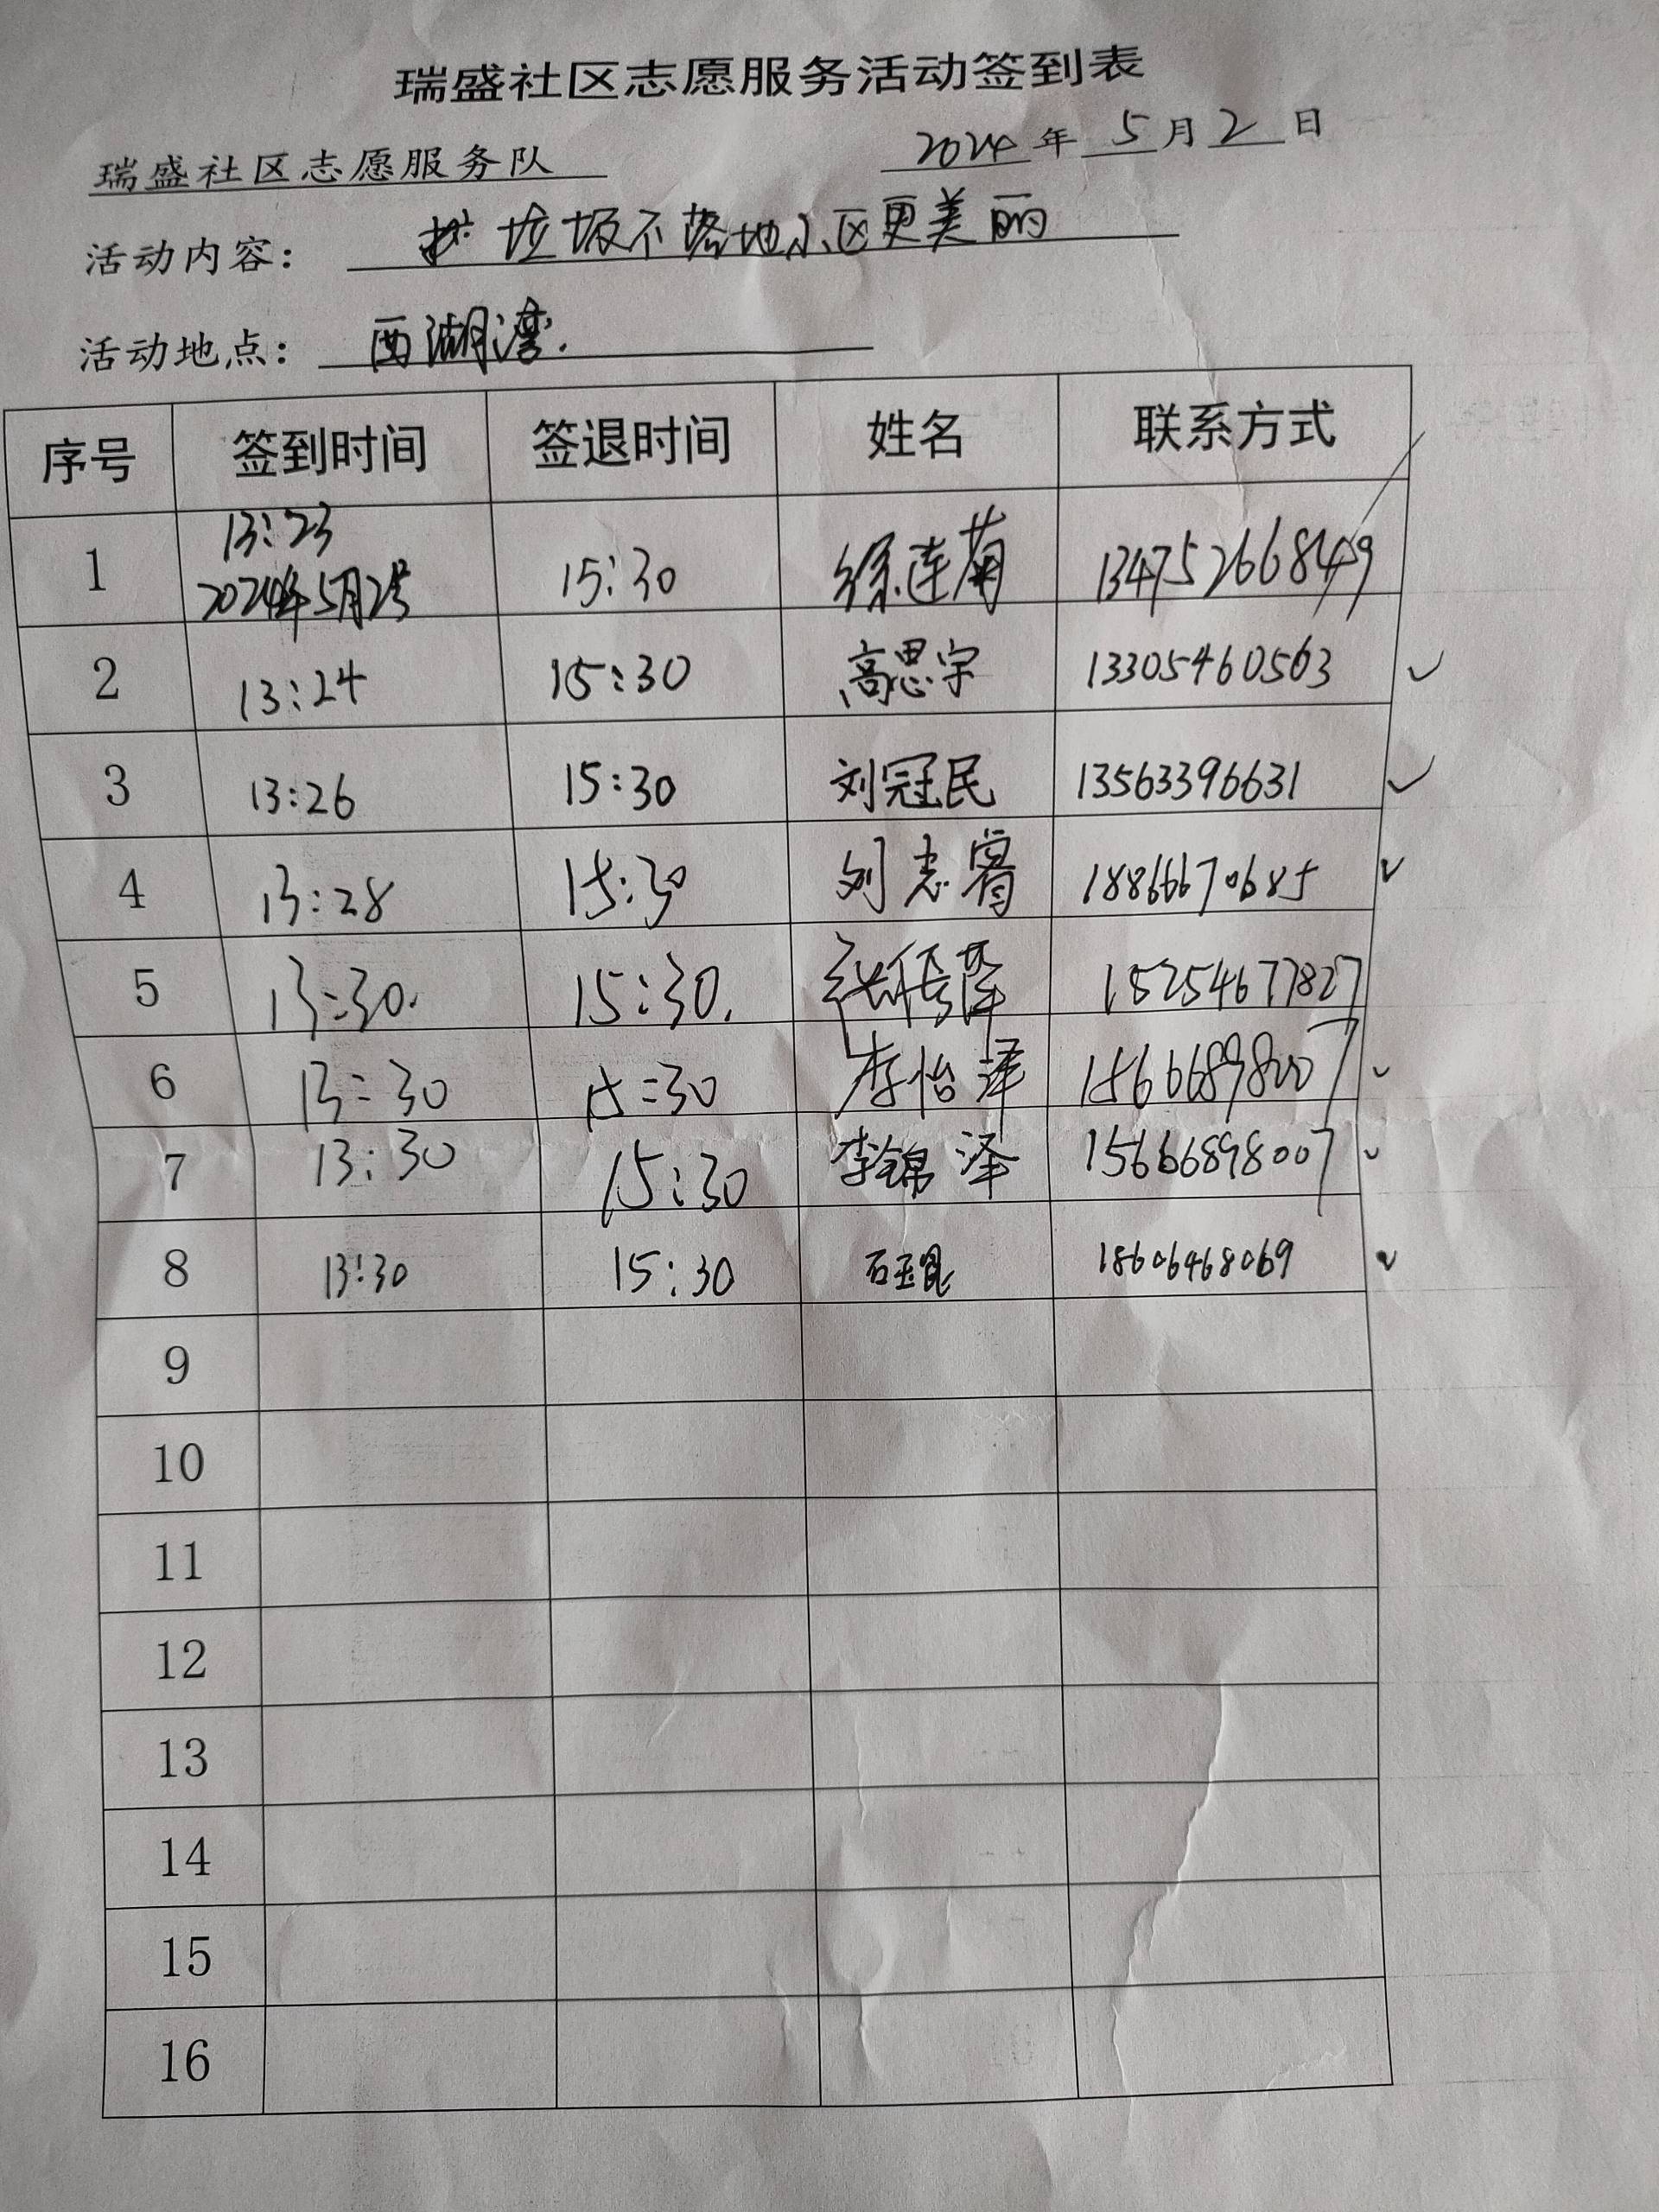 瑞盛社区志愿服务活动签到表
瑞盛社区志愿服务队 2024年5月2日
活动内容： 垃圾不落地小区更美丽
活动地点： 西湖湾.
序号 签到时间 签退时间 姓名 联系方式
1 13:23 2024年5月2号 15:30 徐连菊 13475266849
2 13:24 15:30 高思宇 13305460563 ✓
3 13:26 15:30 刘冠民 13563396631 ✓
4 13:28 15:30 刘志 18866670685 ✓
5 13:30. 15:30. 18254677827
6 13:30 15:30 李怡泽 15666898007 ✓
7 13:30 15:30 李锦泽 15666898007 ✓
8 13:30 15:30 石玉昆 18606468069 ✓
9
10
11
12
13
14
15
16